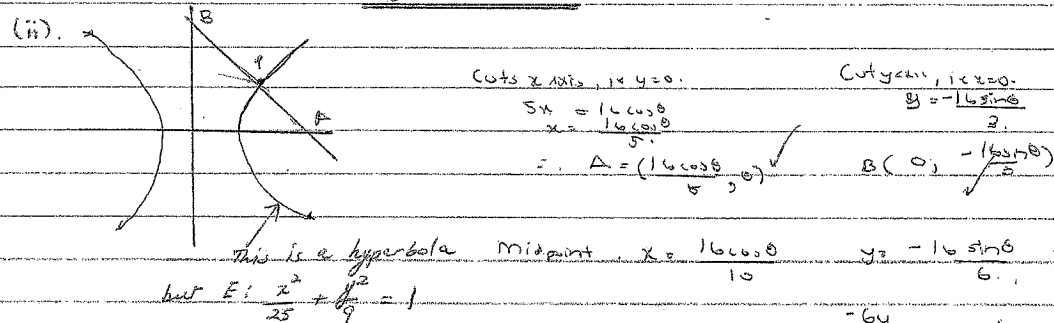 (ii).
B
P
A
Cuts x axis, ie y=0.
5x = 16cosθ
x = 16cosθ/5.
∴ A = (16cosθ/5, 0)
Cut y axis, ie x=0.
y = -16sinθ/3.
B( 0, -16sinθ/3)
This is a hyperbola
but E: x²/25 + y²/9 = 1
Midpoint. x = 16cosθ/10
y = -16sinθ/6.
-6y